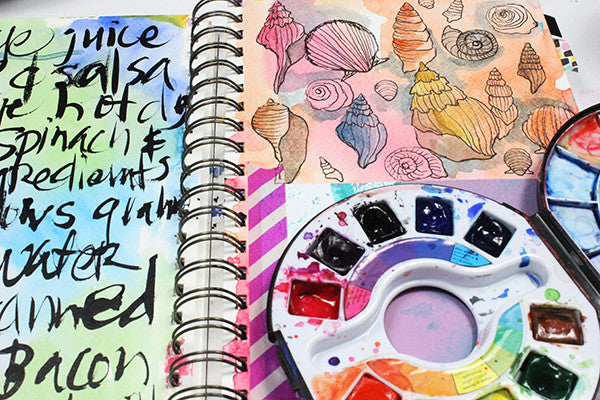 juice
salsa
hotdo
spinach &
gredients
ows graha
water
anned
Bacon